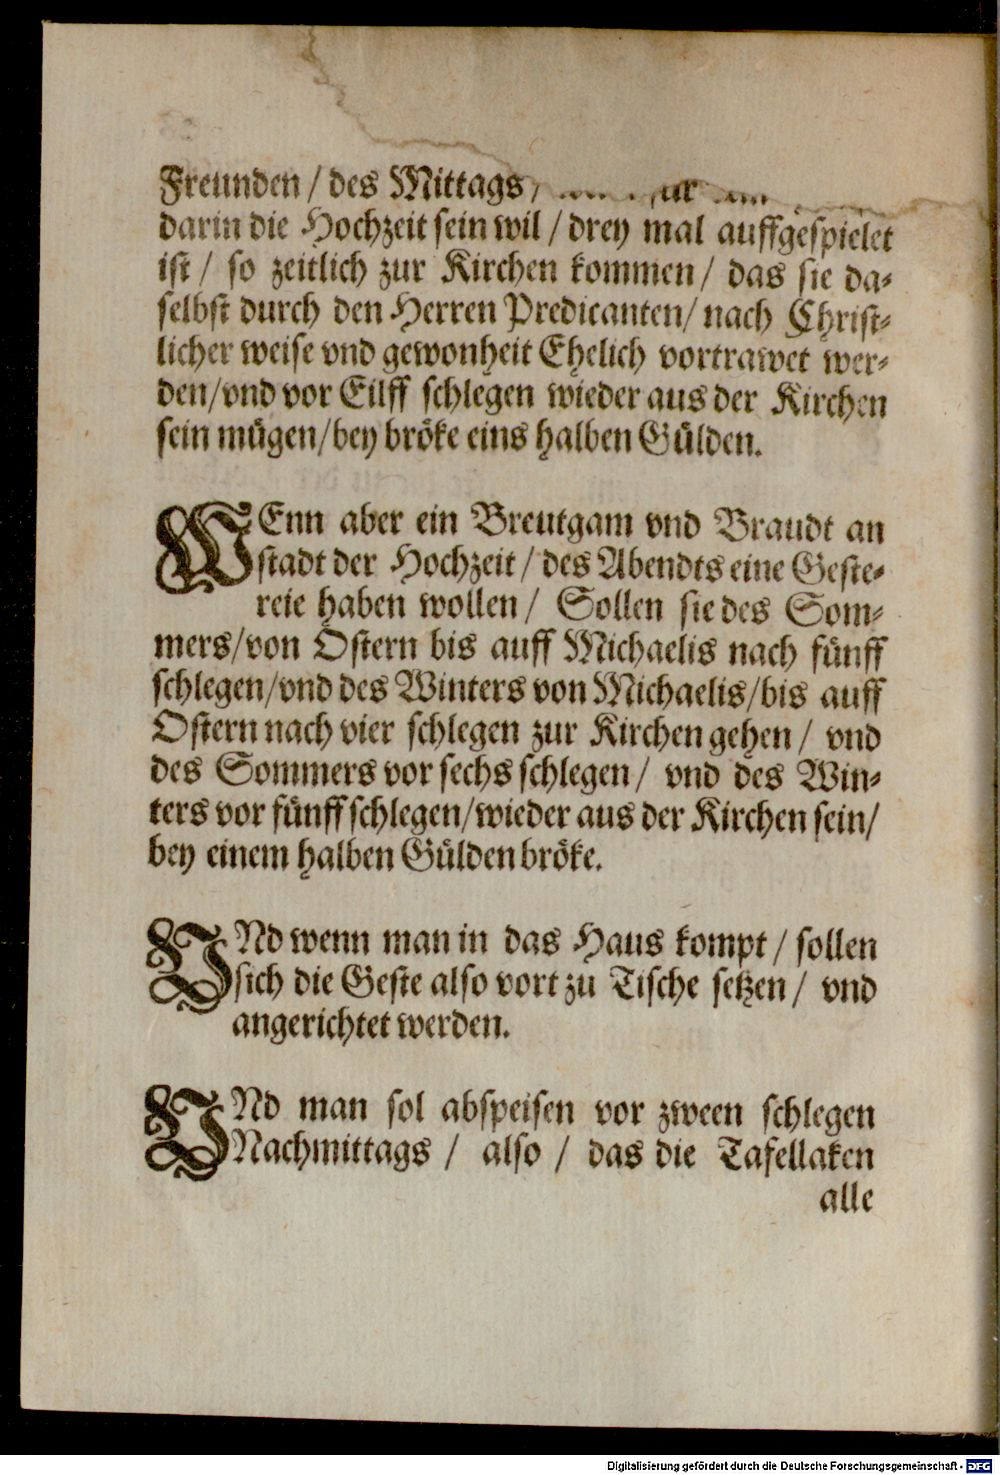 Freunden / des Mittags /
darin die Hochzeit sein wil / drey mal auffgespielet
ist / so zeitlich zur Kirchen kommen / das sie da-
selbst durch den Herren Predicanten / nach Christ-
licher weise vnd gewonheit Ehelich vortrawet wer-
den / vnd vor Eilff schlegen wieder aus der Kirchen
sein mügen / bey bröke eins halben Gülden.
WEnn aber ein Breutgam vnd Braudt an
stadt der Hochzeit / des Abendts eine Geste-
reie haben wollen / Sollen sie des Som-
mers / von Ostern bis auff Michaelis nach fünff
schlegen / vnd des Winters von Michaelis / bis auff
Ostern nach vier schlegen zur Kirchen gehen / vnd
des Sommers vor sechs schlegen / vnd des Win-
ters vor fünff schlegen / wieder aus der Kirchen sein /
bey einem halben Gülden bröke.
VNd wenn man in das Haus kompt / sollen
sich die Geste also vort zu Tische setzen / vnd
angerichtet werden.
VNd man sol abspeisen vor zween schlegen
Nachmittags / also / das die Tafellaken
alle
Digitalisierung gefördert durch die Deutsche Forschungsgemeinschaft - DFG